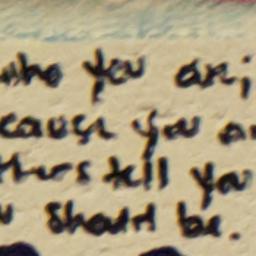 who you are;
cause you a
thers tell you
should be.